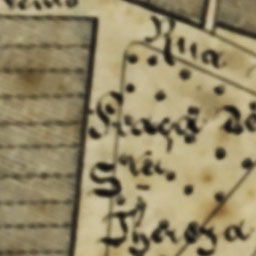 Rua
Praça de
S.ta
Thereza